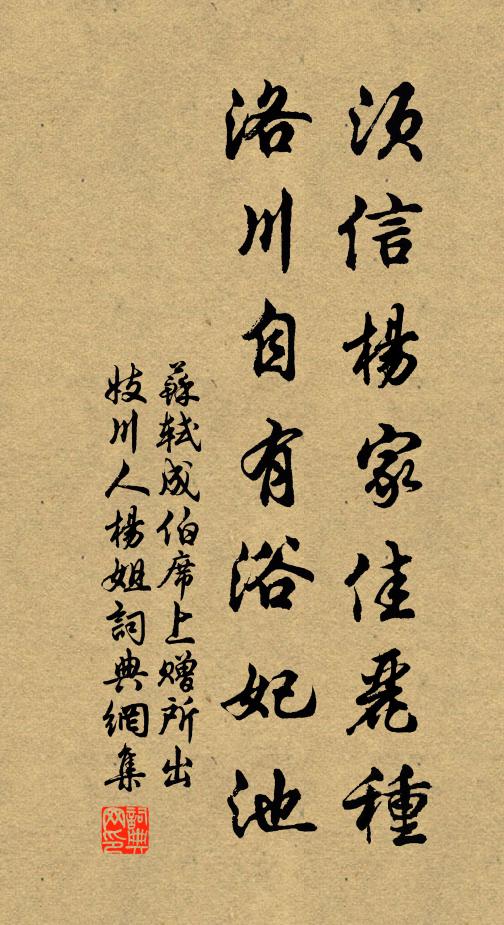 須信楊家佳麗種
洛川自有浴妃池
蘇軾成伯席上贈所出
妓川人楊姐詞典網集
詞典网印